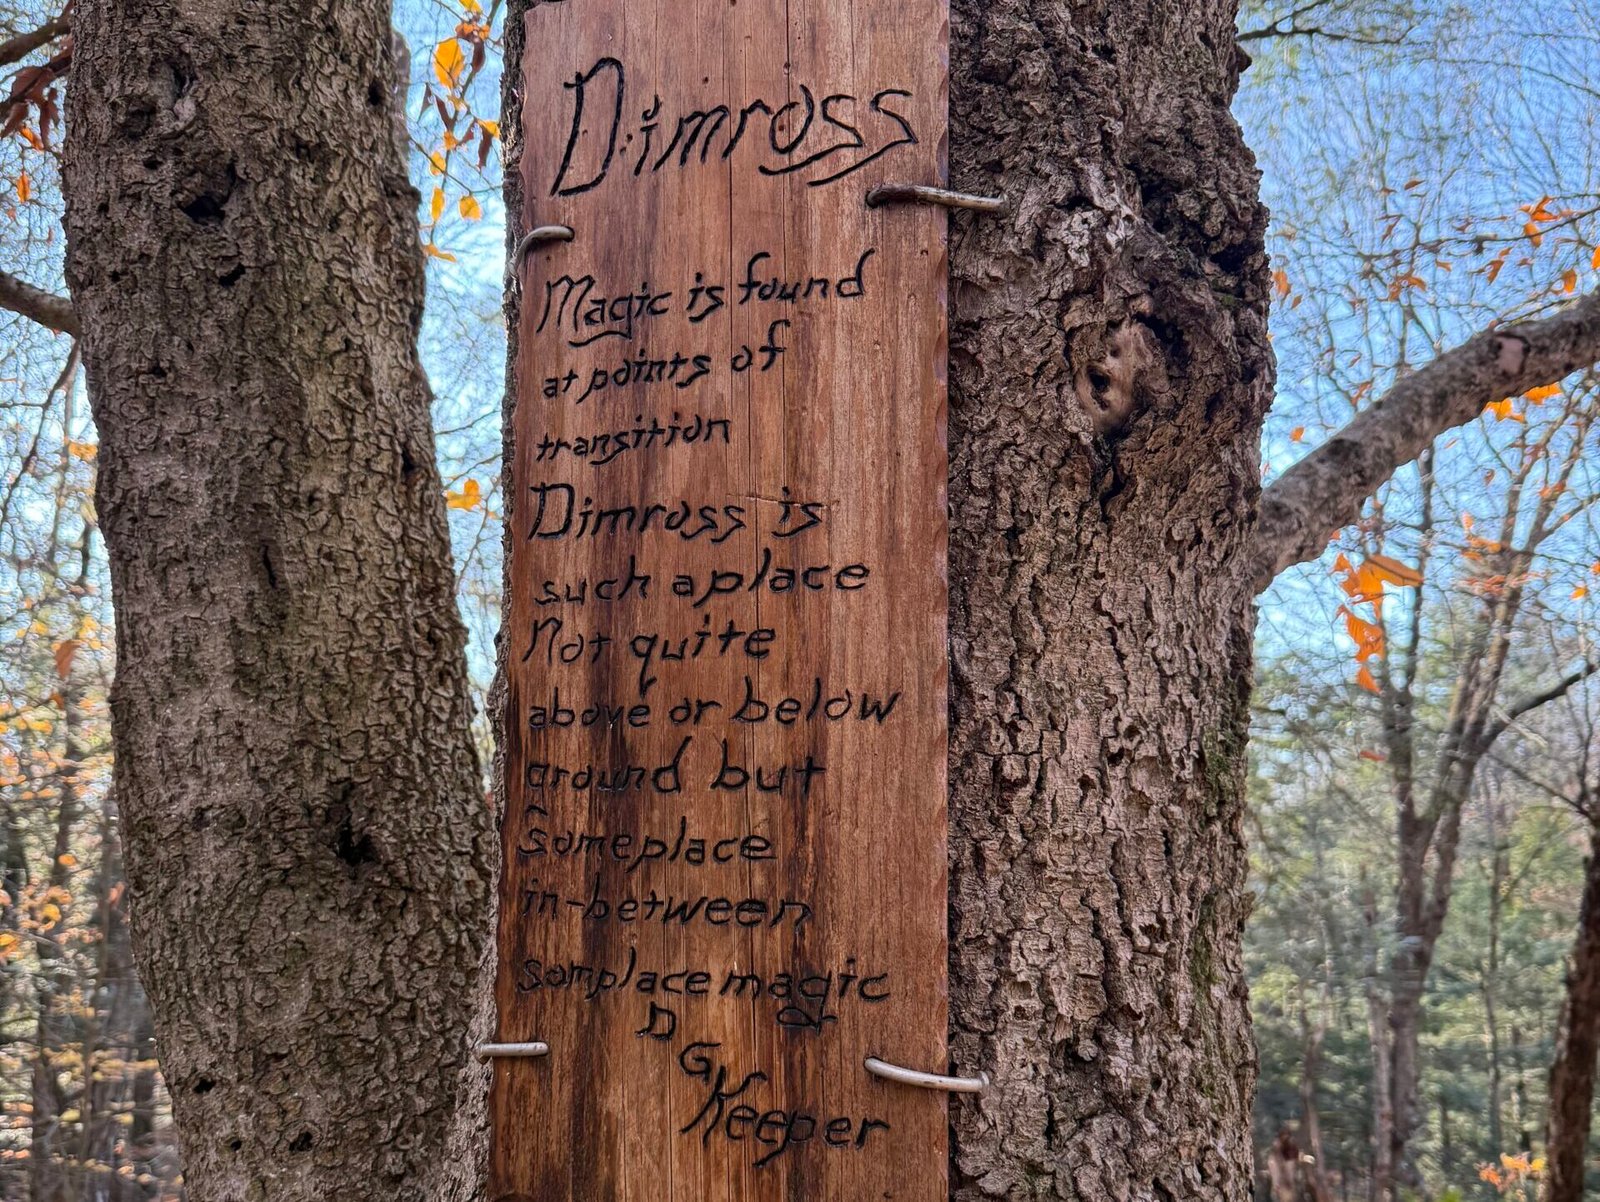 Dimross
Magic is found
at points of
transition
Dimross is
such a place
Not quite
above or below
ground but
someplace
in-between
somplace magic
D
G
Keeper